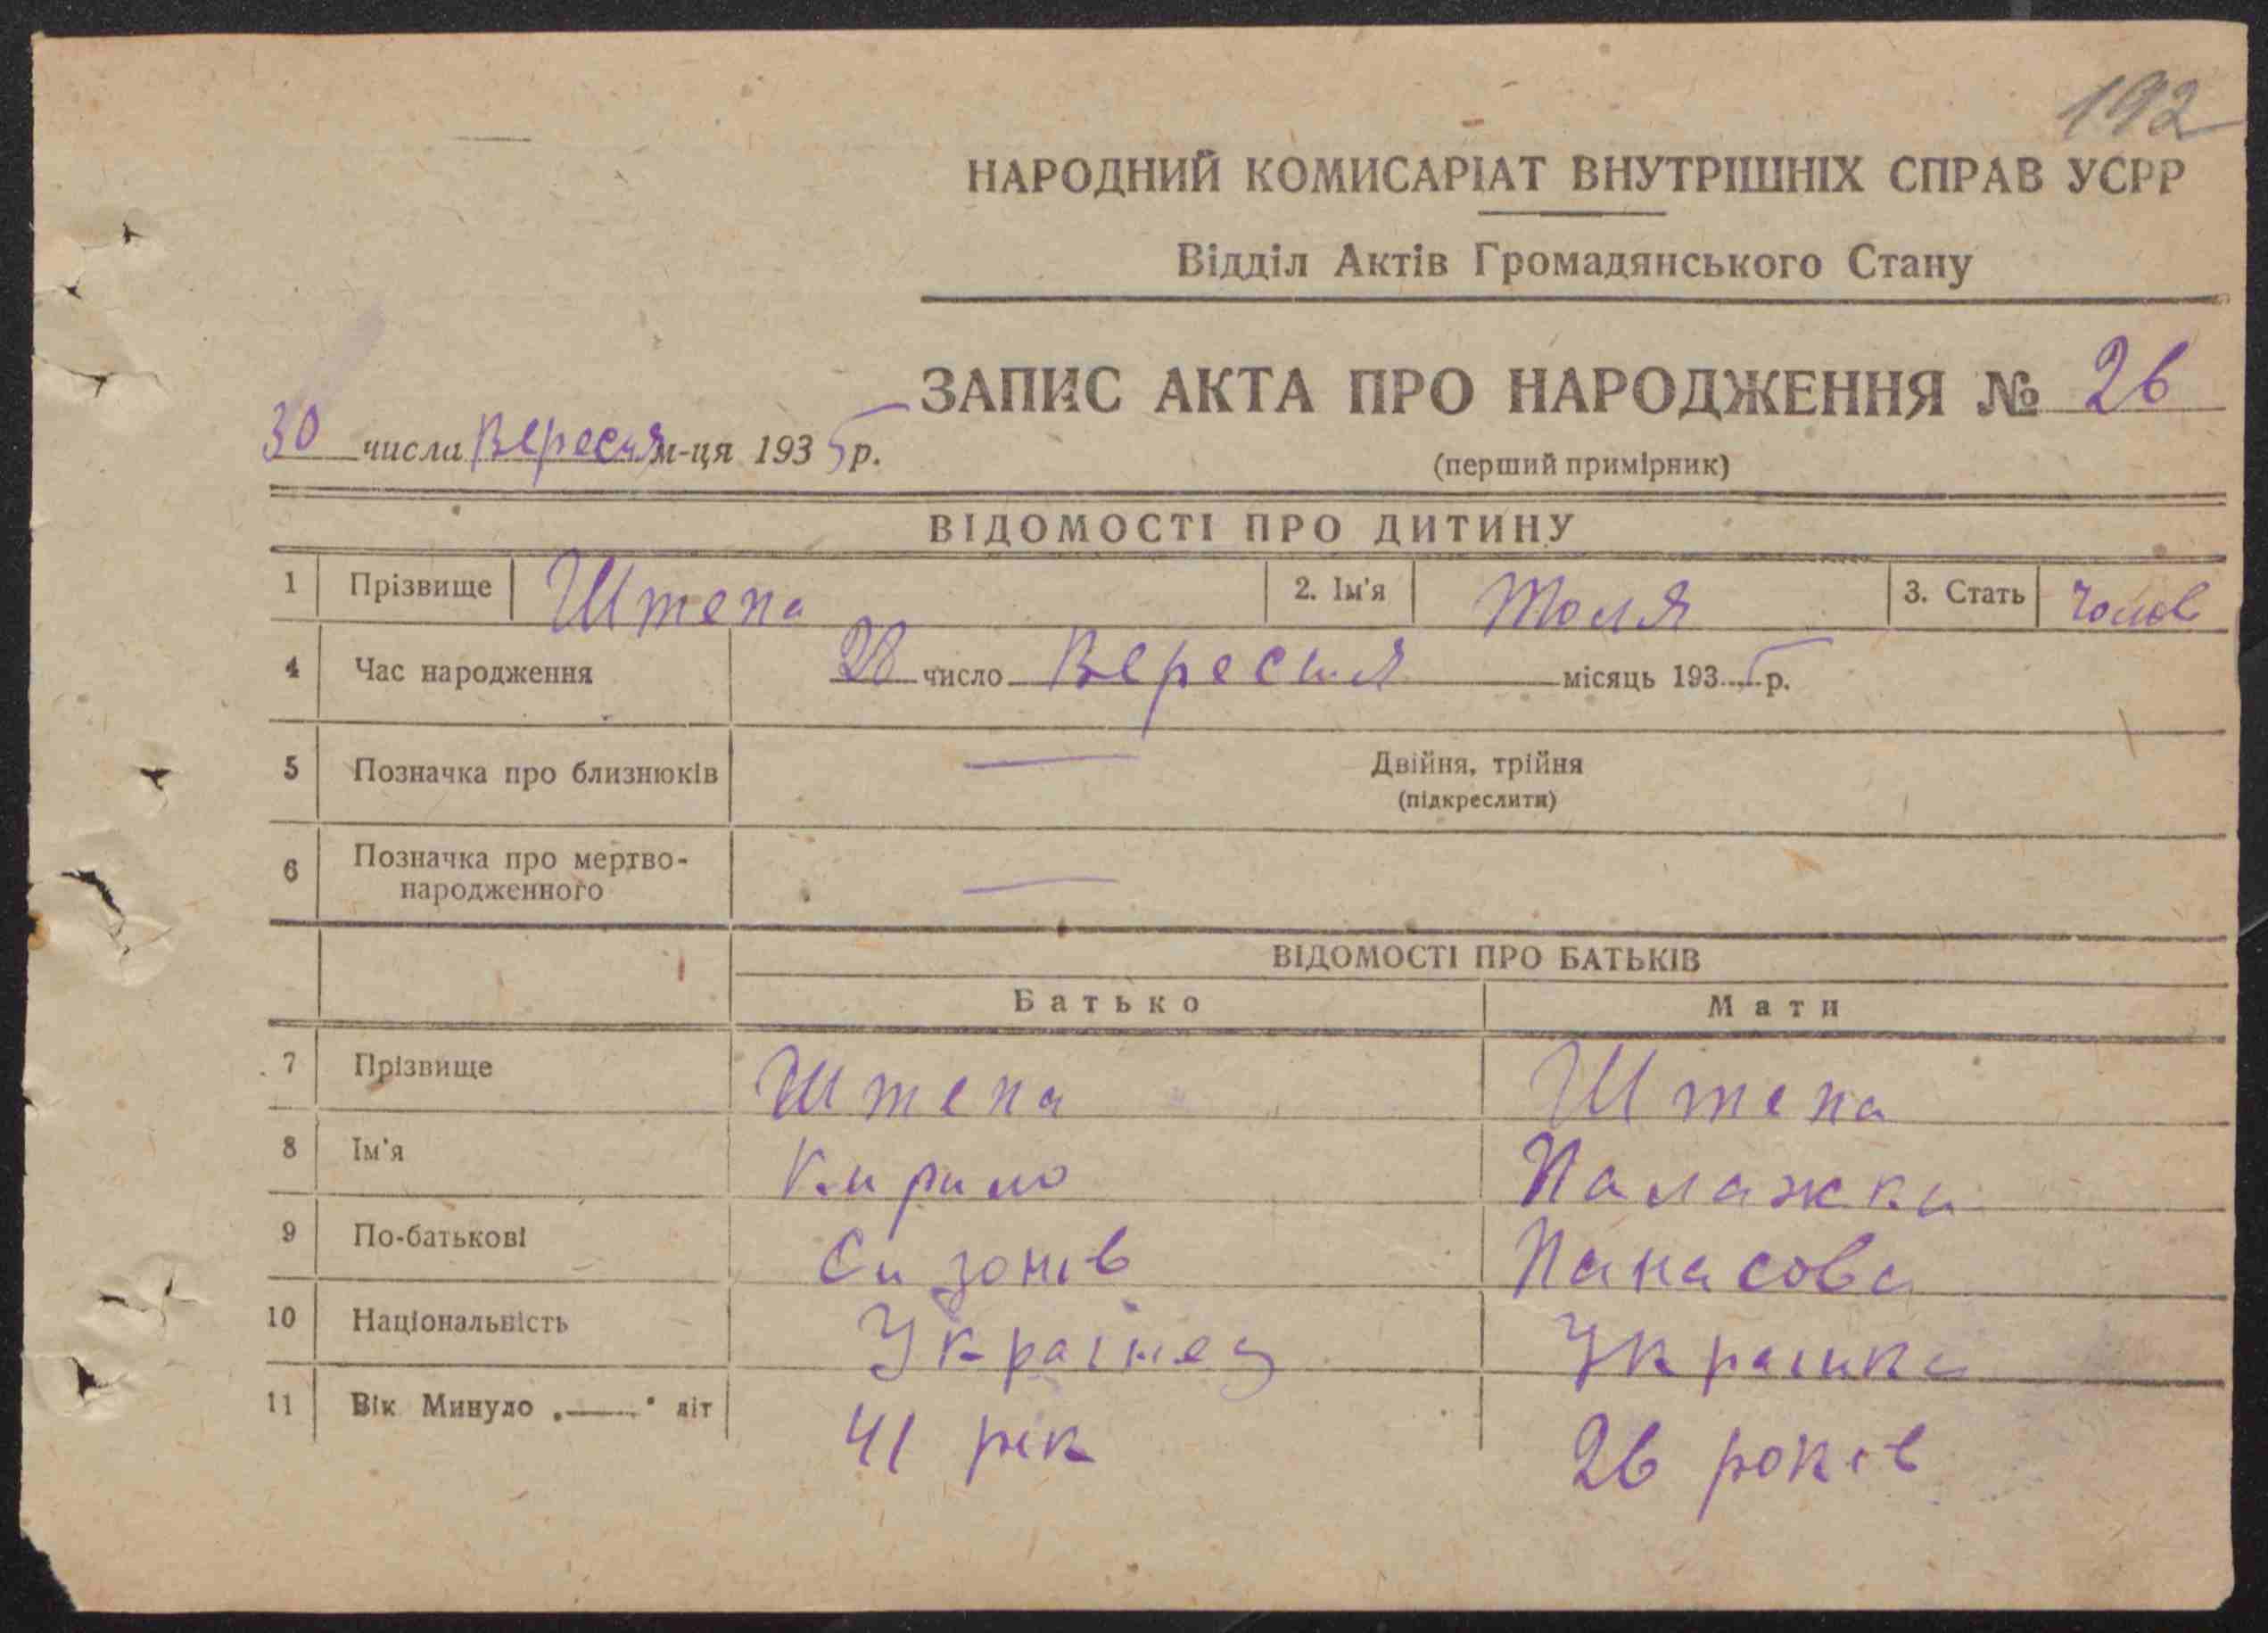 192
НАРОДНИЙ КОМИСАРІАТ ВНУТРІШНІХ СПРАВ УСРР
Відділ Актів Громадянського Стану
ЗАПИС АКТА ПРО НАРОДЖЕННЯ № 26
30 числа Вересня м-ця 1935 р.
(перший примірник)
ВІДОМОСТІ ПРО ДИТИНУ
1 Прізвище Штепа 2. Ім'я Толя 3. Стать Чолов
4 Час народження 28 число Вересня місяць 1935 р.
5 Позначка про близнюків — Двійня, трійня
(підкреслити)
6 Позначка про мертво-
народженного —
ВІДОМОСТІ ПРО БАТЬКІВ
Батько Мати
7 Прізвище Штепа Штепа
8 Ім'я Кирило Палажка
9 По-батькові Сизонів Панасова
10 Національність Українец Украінка
11 Вік Минуло „——" літ 41 рік 26 років